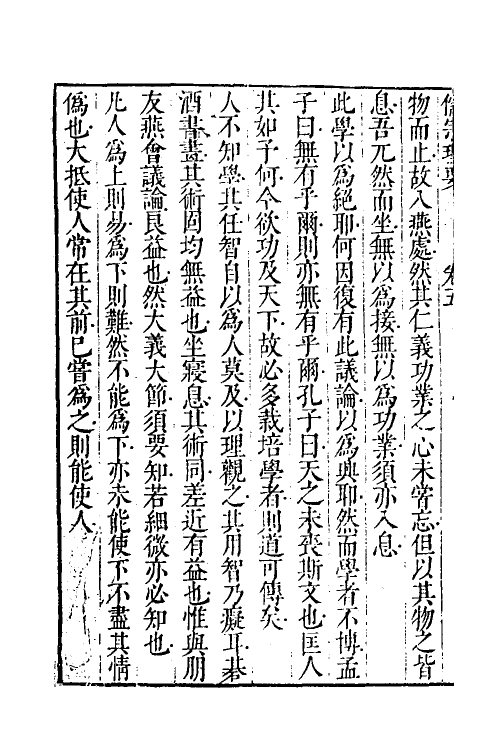 儒宗理要 卷五
物而止故入燕處然其仁義功業之心未嘗忘但以其物之皆
息吾兀然而坐無以為接無以為功業須亦入息
此學以為絕耶何因復有此議論以為興耶然而學者不博孟
子曰無有乎爾則亦無有乎爾孔子曰天之未喪斯文也匡人
其如予何今欲功及天下故必多栽培學者則道可傳矣
人不知學其任智自以為人莫及以理觀之其用智乃癡耳碁
酒書畫其術固均無益也坐寢息其術同差近有益也惟與朋
友燕會議論良益也然大義大節須要知若細微亦必知也
凡人為上則易為下則難然不能為下亦未能使下不盡其情
偽也大抵使人常在其前己嘗為之則能使人